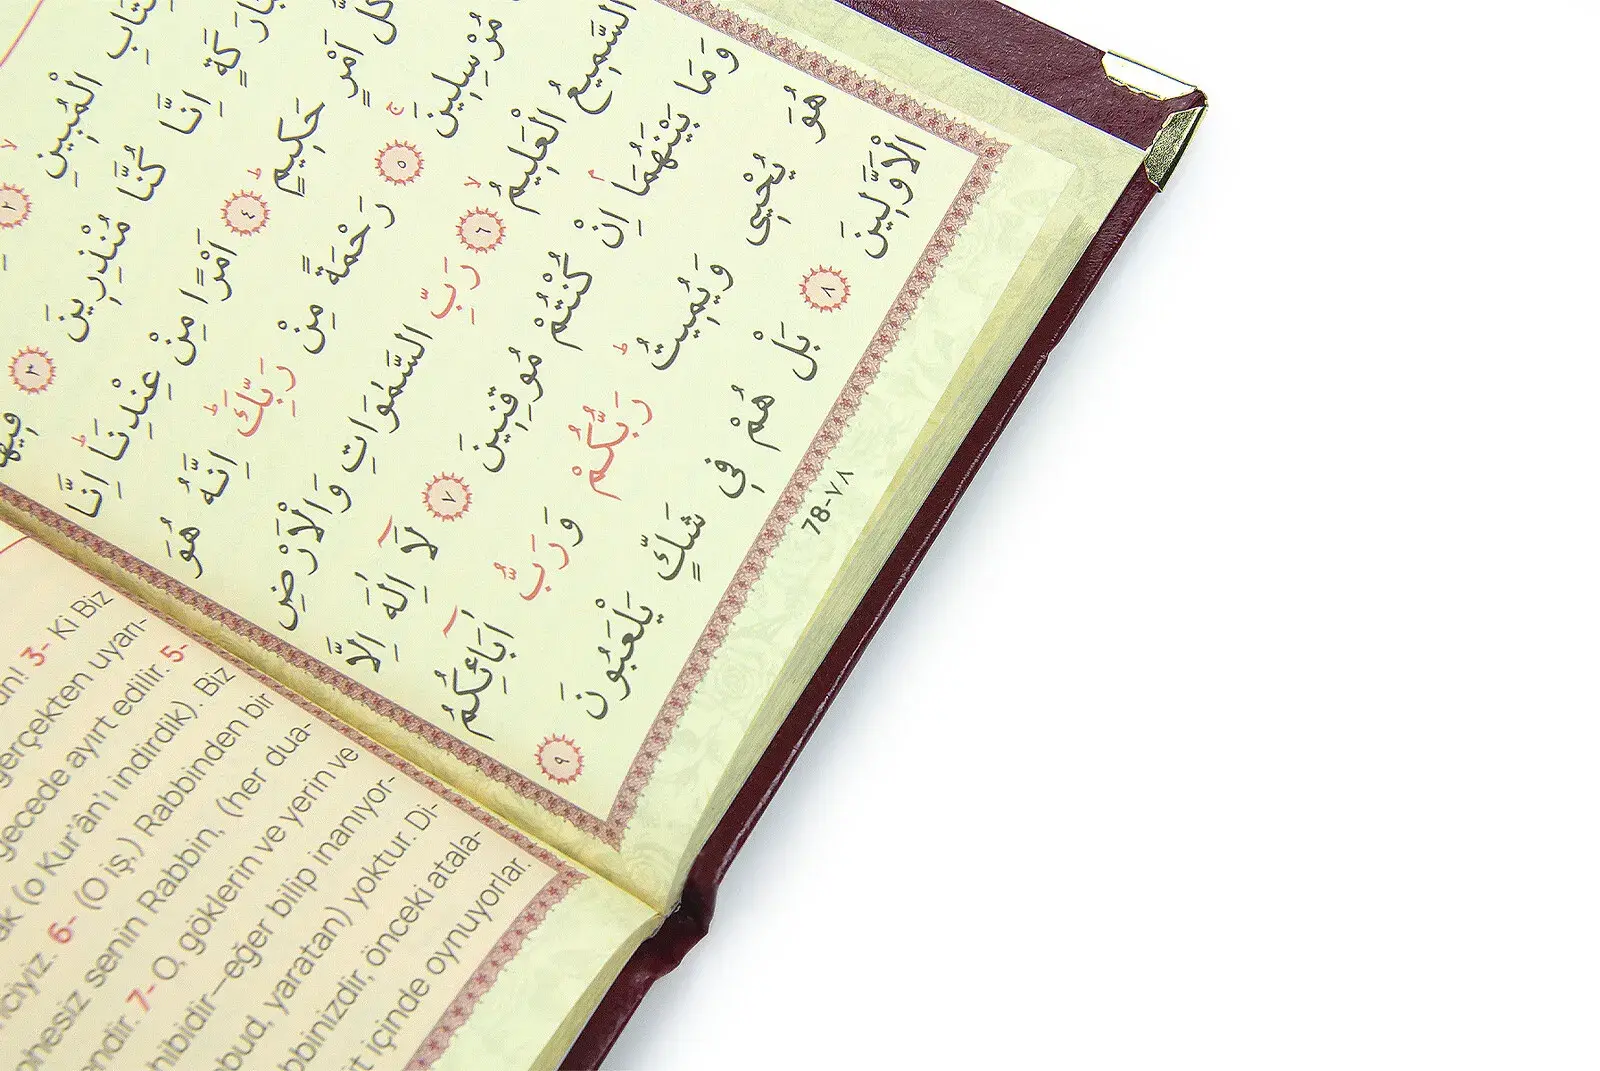 الْمُبِينِ ٢
اِنَّا كُنَّا مُنْذِرِينَ ٣ فِيهَا
كُلُّ اَمْرٍ حَكِيمٍ ٤ اَمْرًا مِنْ عِنْدِنَا اِنَّا
مُرْسِلِينَ ٥ رَحْمَةً مِنْ رَبِّكَ اِنَّهُ هُوَ
السَّمِيعُ الْعَلِيمُ ٦ رَبِّ السَّمٰوَاتِ وَالْاَرْضِ
وَمَا بَيْنَهُمَا اِنْ كُنْتُمْ مُوقِنِينَ ٧ لَا اِلٰهَ اِلَّا
هُوَ يُحْيِى وَيُمِيتُ رَبُّكُمْ وَرَبُّ اٰبَائِكُمُ
الْاَوَّلِينَ ٨ بَلْ هُمْ فِى شَكٍّ يَلْعَبُونَ ٩
78-٧٨
3- Ki Biz
gerçekten uyarı-
gecede ayırt edilir. 5-
(o Kur'ân'ı indirdik). Biz
6- (O iş,) Rabbinden bir
senin Rabbin, (her dua-
7- O, göklerin ve yerin ve
hibidir—eğer bilip inanıyor-
yaratan) yoktur. Di-
bbinizdir, önceki atala-
içinde oynuyorlar.